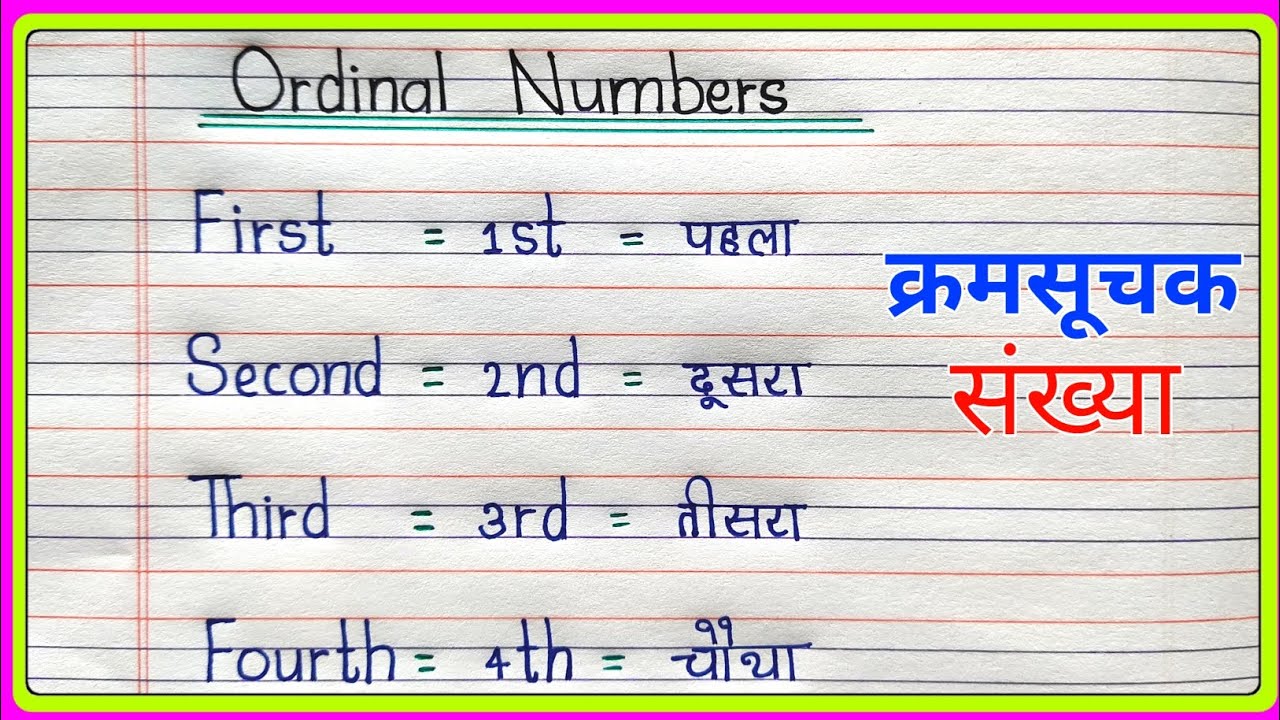 Ordinal Numbers
First = 1st = पहला
Second = 2nd = दूसरा
Third = 3rd = तीसरा
Fourth = 4th = चौथा
क्रमसूचक
संख्या